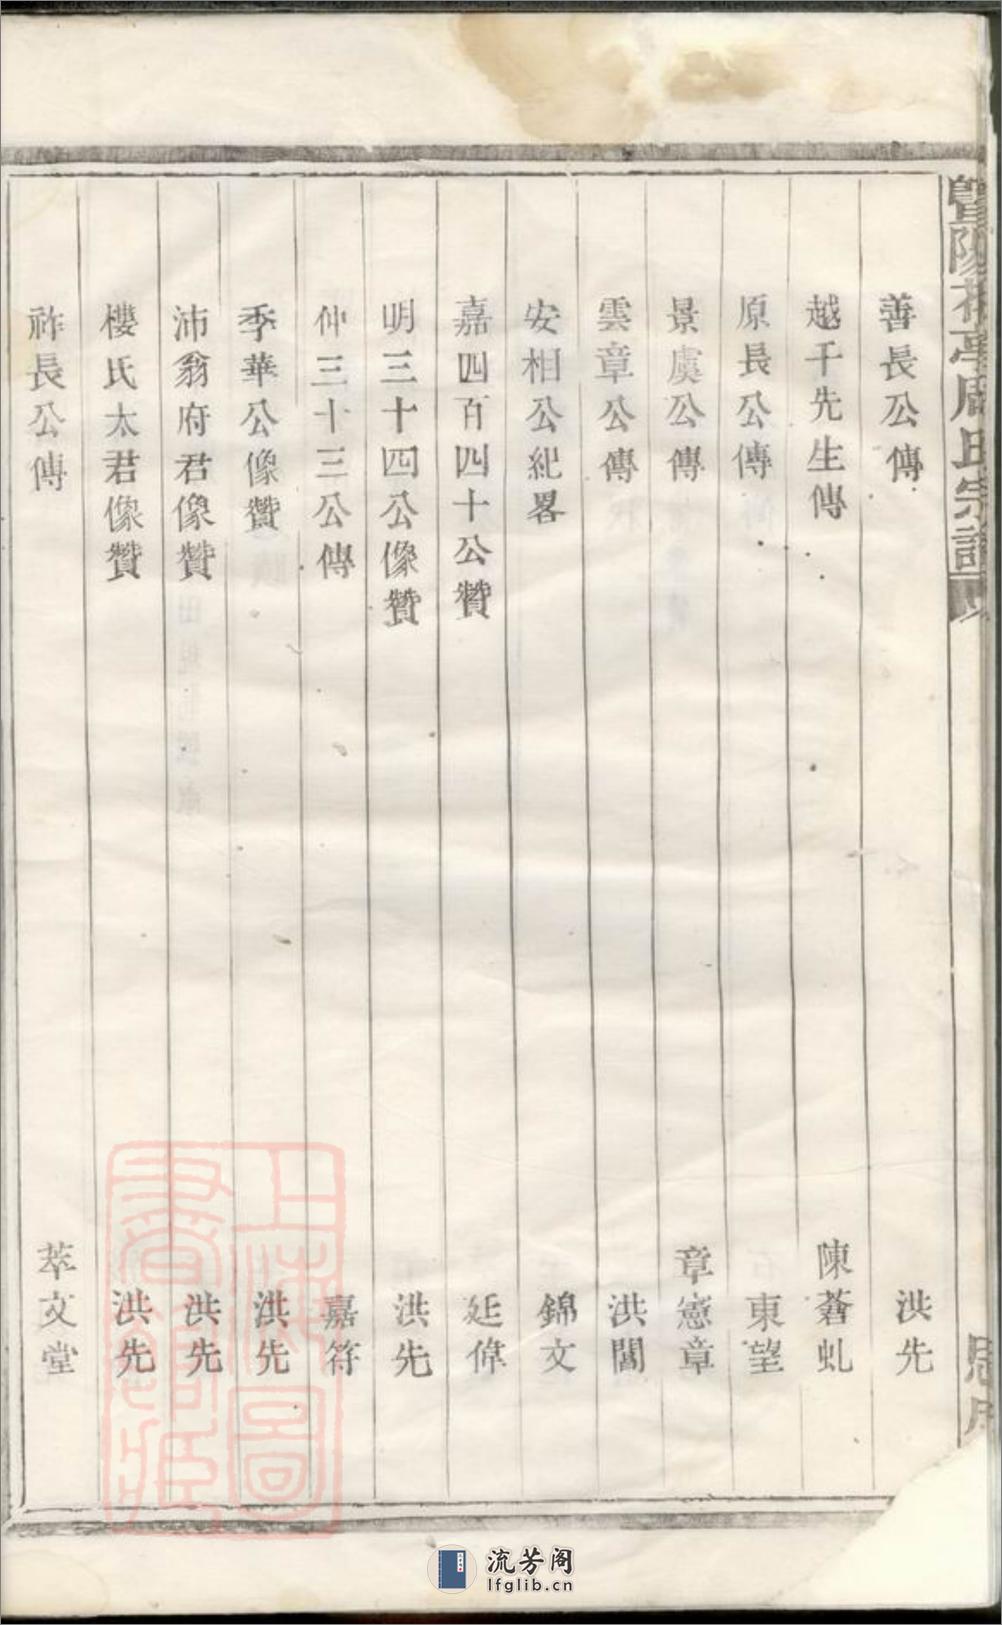 暨陽花亭周氏宗譜
善長公傳 洪先
越千先生傳 陳蒼虬
原長公傳 東望
景虞公傳 章憲章
雲章公傳 洪闓
安相公紀畧 錦文
嘉四百四十公贊 廷偉
明三十四公像贊 洪先
仲三十三公傳 嘉符
季華公像贊 洪先
沛翁府君像贊 洪先
樓氏太君像贊 洪先
祚長公傳 萃文堂
上海圖書館藏
流芳阁
lfglib.cn